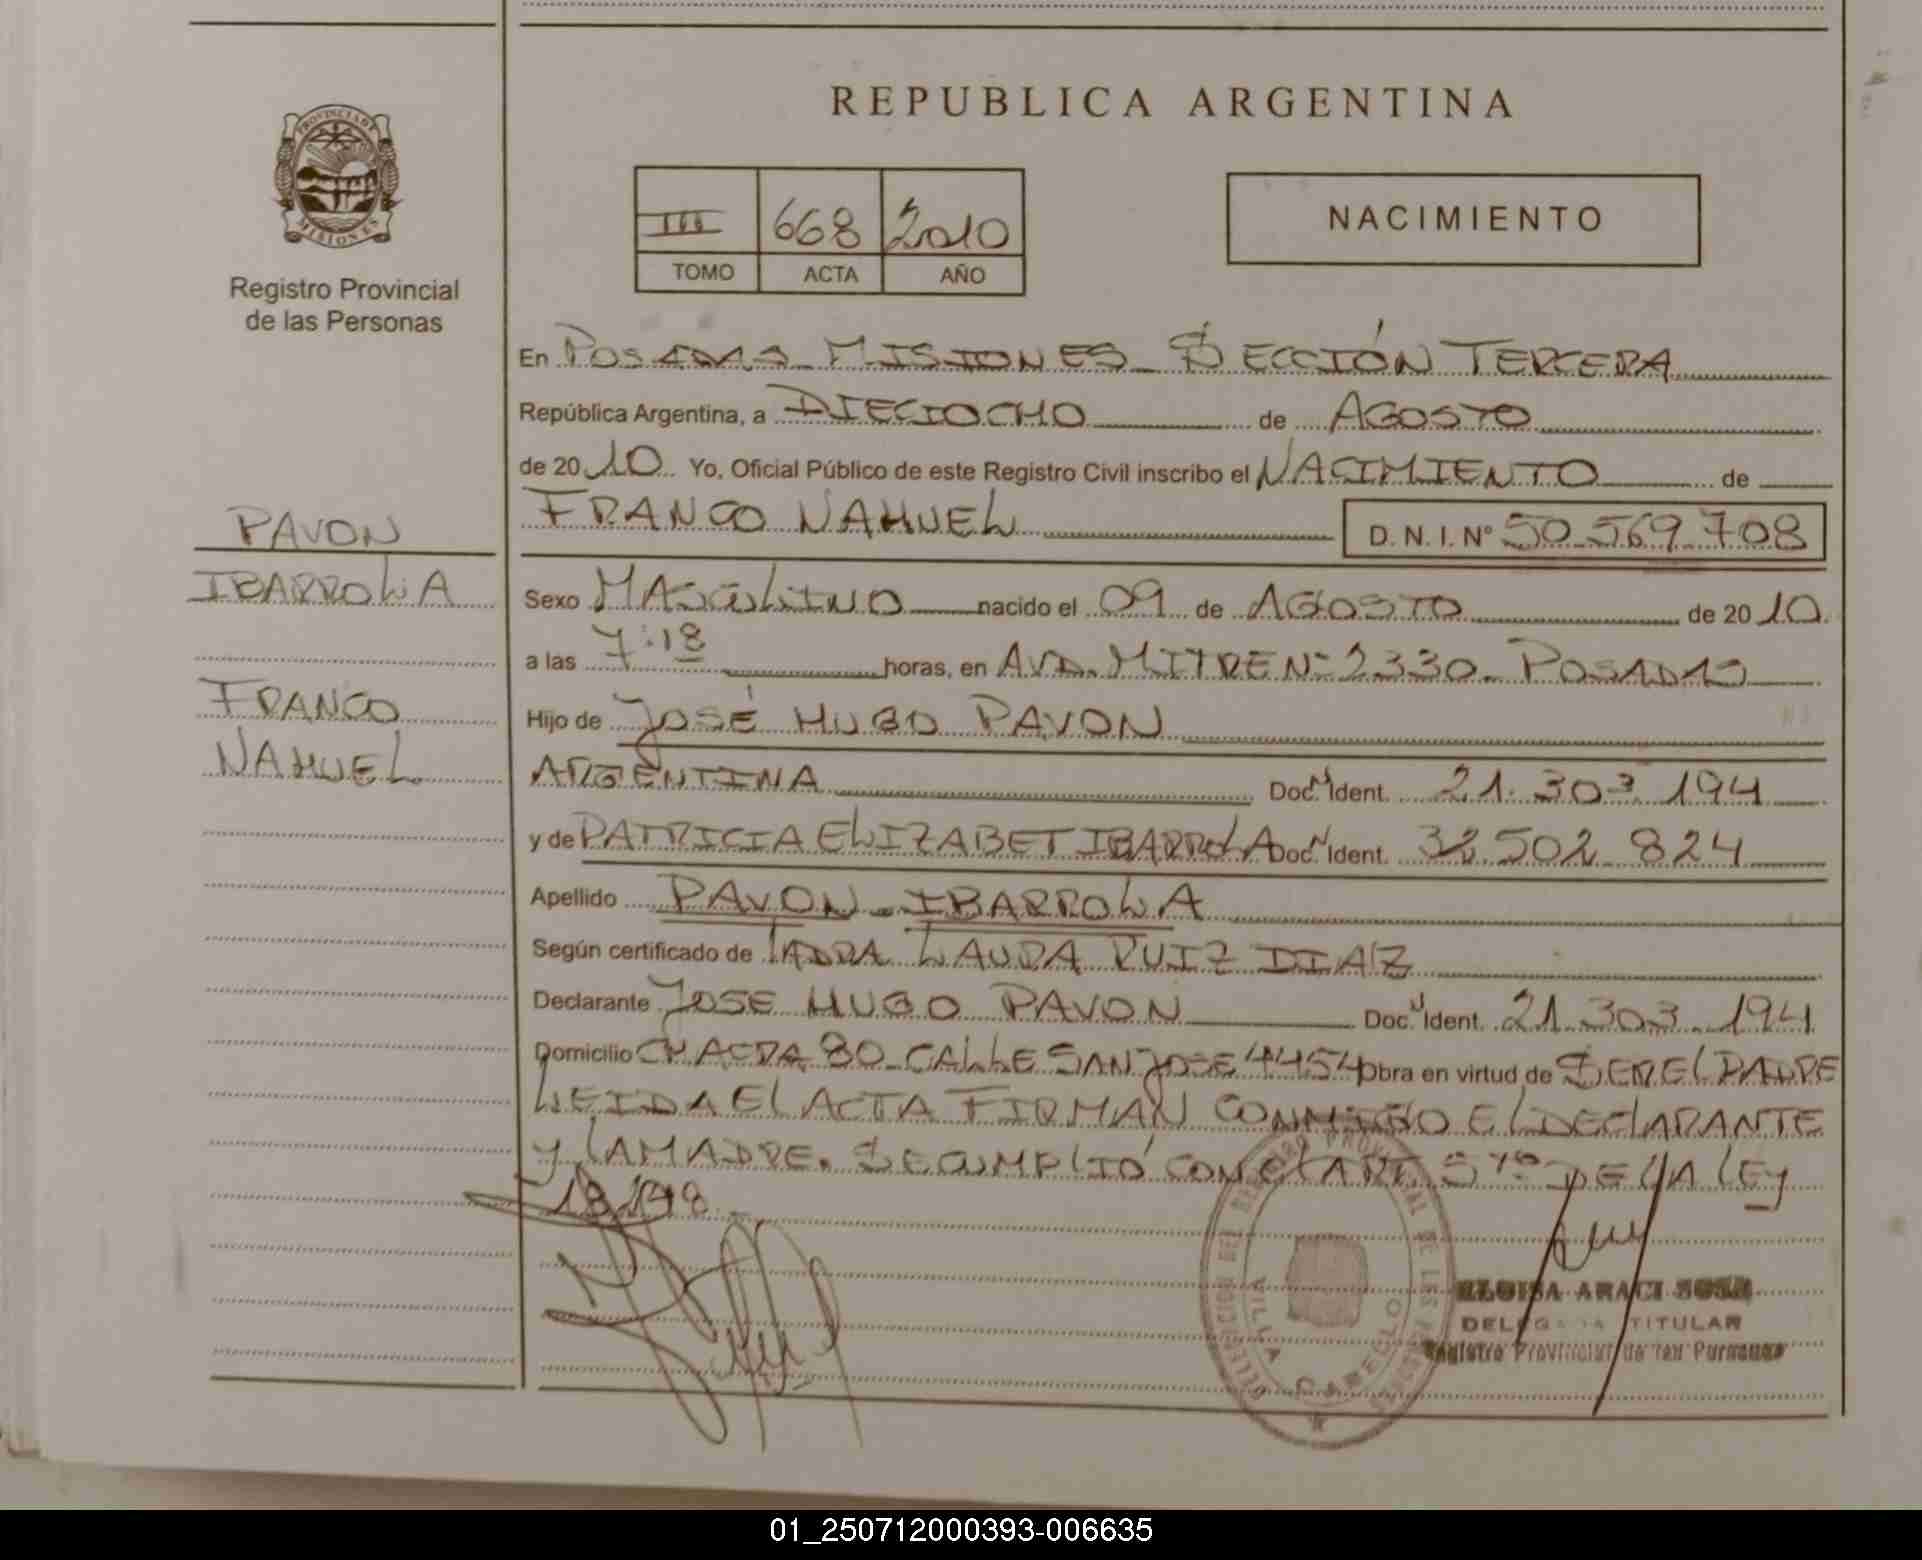 REPUBLICA ARGENTINA
PROVINCIA DE
MISIONES
Registro Provincial
de las Personas
III 668 2010
TOMO ACTA AÑO
NACIMIENTO
En POSADAS - MISIONES - SECCIÓN TERCERA
República Argentina, a DIECIOCHO de AGOSTO
de 2010 Yo, Oficial Público de este Registro Civil inscribo el NACIMIENTO de
FRANCO NAHUEL D. N. I. Nº 50.569.708
PAVON
IBARROLA
FRANCO
NAHUEL
Sexo MASCULINO nacido el 09 de AGOSTO de 2010
a las 7:18 horas, en AVD. MITRE Nº 2330 - POSADAS
Hijo de JOSÉ HUGO PAVON
ARGENTINA Doc. Ident. 21.303.194
y de PATRICIA ELIZABET IBARROLA Doc. Ident. 32.502.824
Apellido PAVON - IBARROLA
Según certificado de LAURA RUIZ DIAZ
Declarante JOSE HUGO PAVON Doc. Ident. 21.303.194
Domicilio CHACRA 80 - CALLE SAN JOSE 4454 Obra en virtud de SER EL PADRE
LEIDA EL ACTA FIRMAN CONMIGO EL DECLARANTE
Y LA MADRE. SE CUMPLIÓ CON EL ART. 5to DE LA LEY
18.248.
VILLA CABELLO
ELOISA ARACI SOSA
DELEGADA TITULAR
Registro Provincial de las Personas
01_250712000393-006635